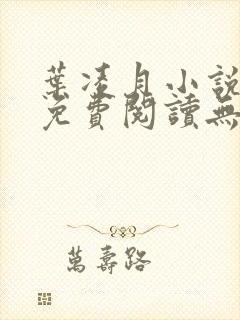 葉凌月小說
免費閱讀無
萬壽路